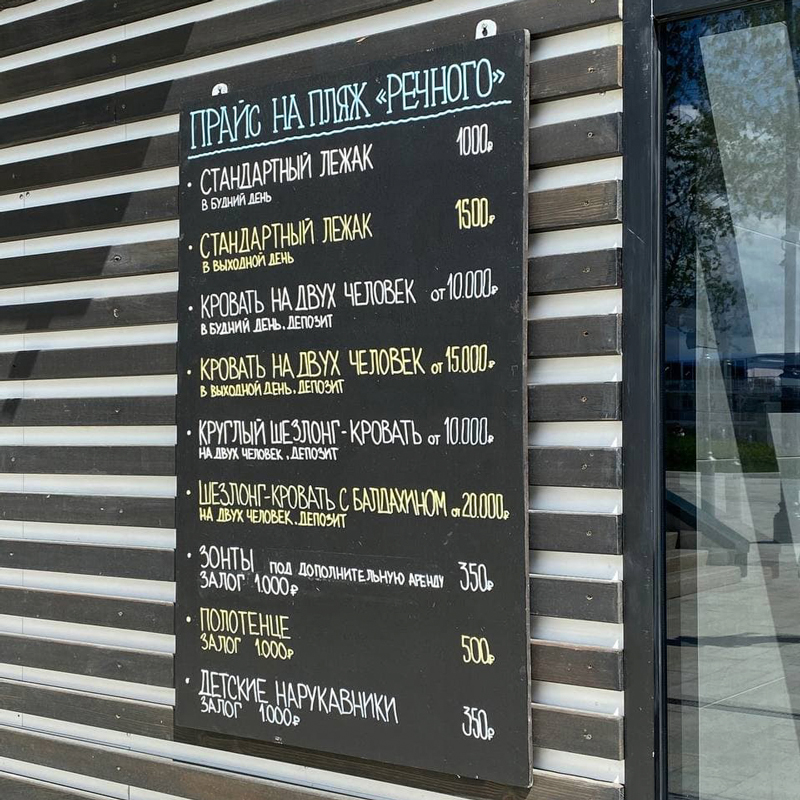 ПРАЙС НА ПЛЯЖ «РЕЧНОГО»
• СТАНДАРТНЫЙ ЛЕЖАК 1000₽
В БУДНИЙ ДЕНЬ
• СТАНДАРТНЫЙ ЛЕЖАК 1500₽
В ВЫХОДНОЙ ДЕНЬ
• КРОВАТЬ НА ДВУХ ЧЕЛОВЕК ОТ 10.000₽
В БУДНИЙ ДЕНЬ. ДЕПОЗИТ
• КРОВАТЬ НА ДВУХ ЧЕЛОВЕК ОТ 15.000₽
В ВЫХОДНОЙ ДЕНЬ. ДЕПОЗИТ
• КРУГЛЫЙ ШЕЗЛОНГ-КРОВАТЬ ОТ 10.000₽
НА ДВУХ ЧЕЛОВЕК. ДЕПОЗИТ
• ШЕЗЛОНГ-КРОВАТЬ С БАЛДАХИНОМ ОТ 20.000₽
НА ДВУХ ЧЕЛОВЕК. ДЕПОЗИТ
• ЗОНТЫ ПОД ДОПОЛНИТЕЛЬНУЮ АРЕНДУ 350₽
ЗАЛОГ 1.000₽
• ПОЛОТЕНЦЕ 500₽
ЗАЛОГ 1.000₽
• ДЕТСКИЕ НАРУКАВНИКИ 350₽
ЗАЛОГ 1.000₽